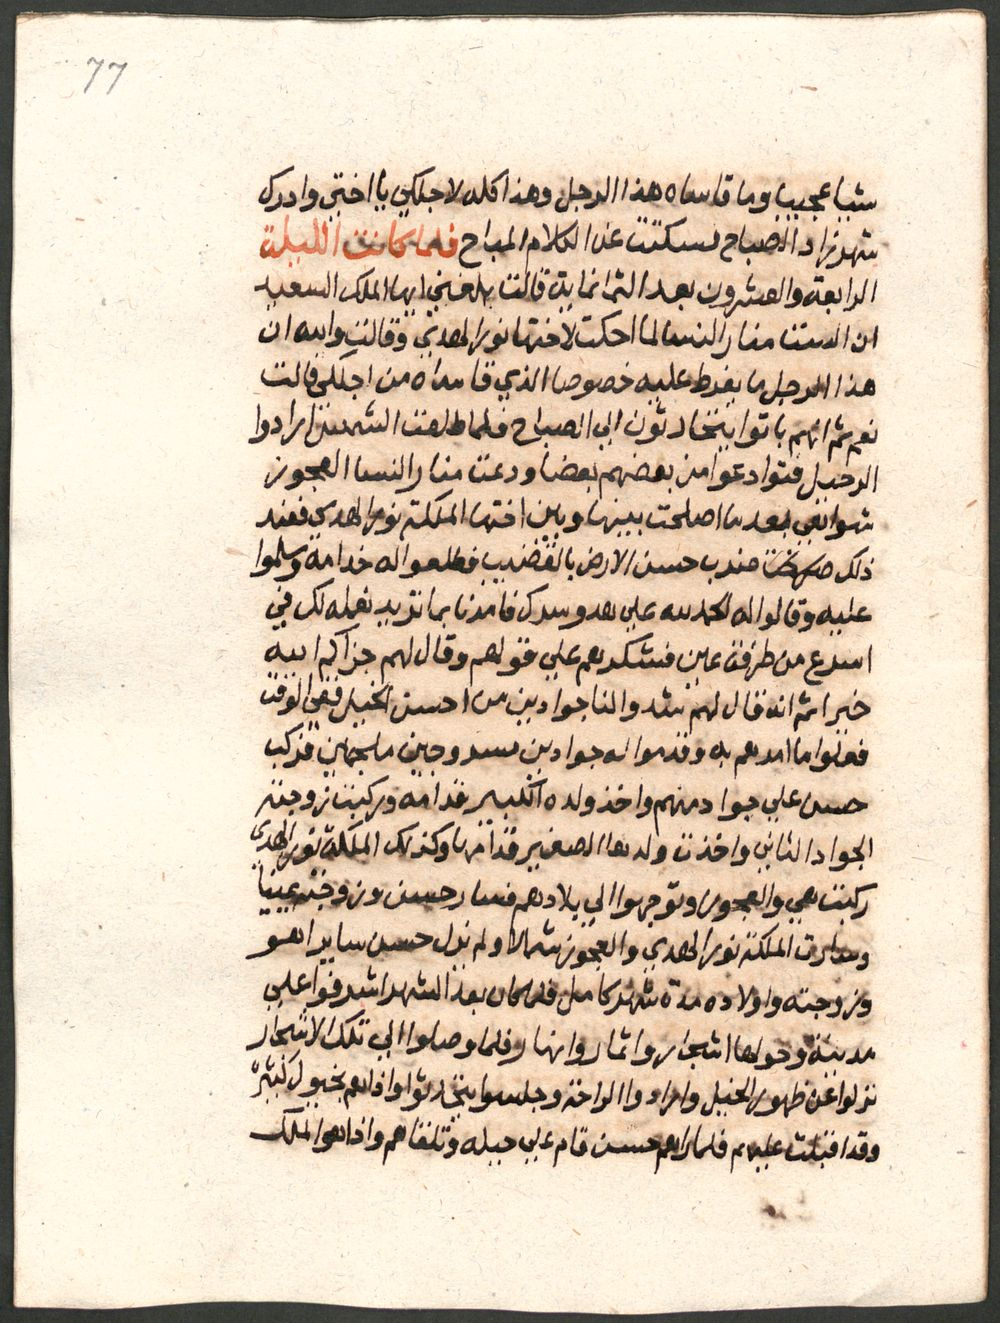 77
شيا عجيبا وما قاساه هذا الرجل وهذا كله لاجلكي يا اختي وادرك
شهرزاد الصباح فسكتت عن الكلام المباح فلما كانت الليلة
الرابعة والعشرون بعد الثمانماية قالت بلغني ايها الملك السعيد
ان الست منار النسا لما احكت لاختها نور الهدي وقالت والله ان
هذا الرجل ما يفرط عليه خصوصا الذي قاساه من اجلكي قالت
نعم ثم انهم باتوا يتحادثون الي الصباح فلما طلعت الشمس ارادوا
الرحيل فتوادعوا من بعضهم بعضا ودعت منار النسا العجوز
شواهي بعد ما اصلحت بينها وبين اختها الملكة نور الهدي فعند
ذلك ضرب حسن الارض بالقضيب فطلعوا له خدامه وسلموا
عليه وقالوا له الحمد لله علي هدو سرك فامرنا بما تريد نعمله لك في
اسرع من طرفة عين فشكرهم علي قولهم وقال لهم جزاكم الله
خيرا ثم انه قال لهم شدوا لنا جوادين من احسن الخيل ففي الوقت
فعلوا ما امرهم به وقدموا له جوادين مسروجين ملجمين فركب
حسن علي جواد منهم واخذ ولده الكبير قدامه وركبت زوجته
الجواد الثاني واخذت ولدها الصغير قدامها وكذلك الملكة نور الهدي
ركبت هي والعجوز وتوجهوا الي بلادهم فسار حسن وزوجته يمينا
وسارت الملكة نور الهدي والعجوز شمالا ولم نزل حسن ساير اهو
وزوجته واولاده مدة شهر كامل فلما كان بعد الشهر اشرفوا علي
مدينة وحولها اشجار واثمار وانهار فلما وصلوا الي تلك الاشجار
نزلوا عن ظهور الخيل وارادوا الراحة وجلسوا يتحادثوا واذا هم بخيول كثيرة
وقد اقبلت عليهم فلما راهم حسن قام علي حيله وتلقاهم واذا هو الملك